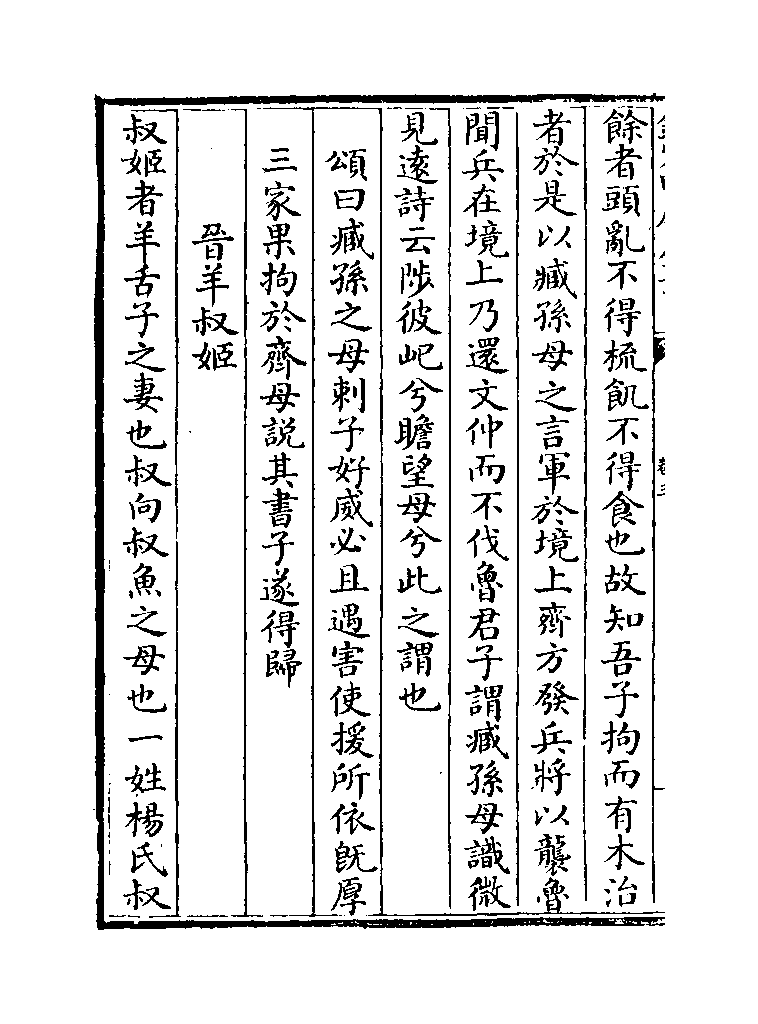 餘者頭亂不得梳飢不得食也故知吾子拘而有木治
者於是以臧孫母之言軍於境上齊方發兵將以襲魯
聞兵在境上乃還文仲而不伐魯君子謂臧孫母識微
見遠詩云陟彼屺兮瞻望母兮此之謂也
頌曰臧孫之母刺子好威必且遇害使援所依既厚
三家果拘於齊母說其書子遂得歸
晉羊叔姬
叔姬者羊舌子之妻也叔向叔魚之母也一姓楊氏叔